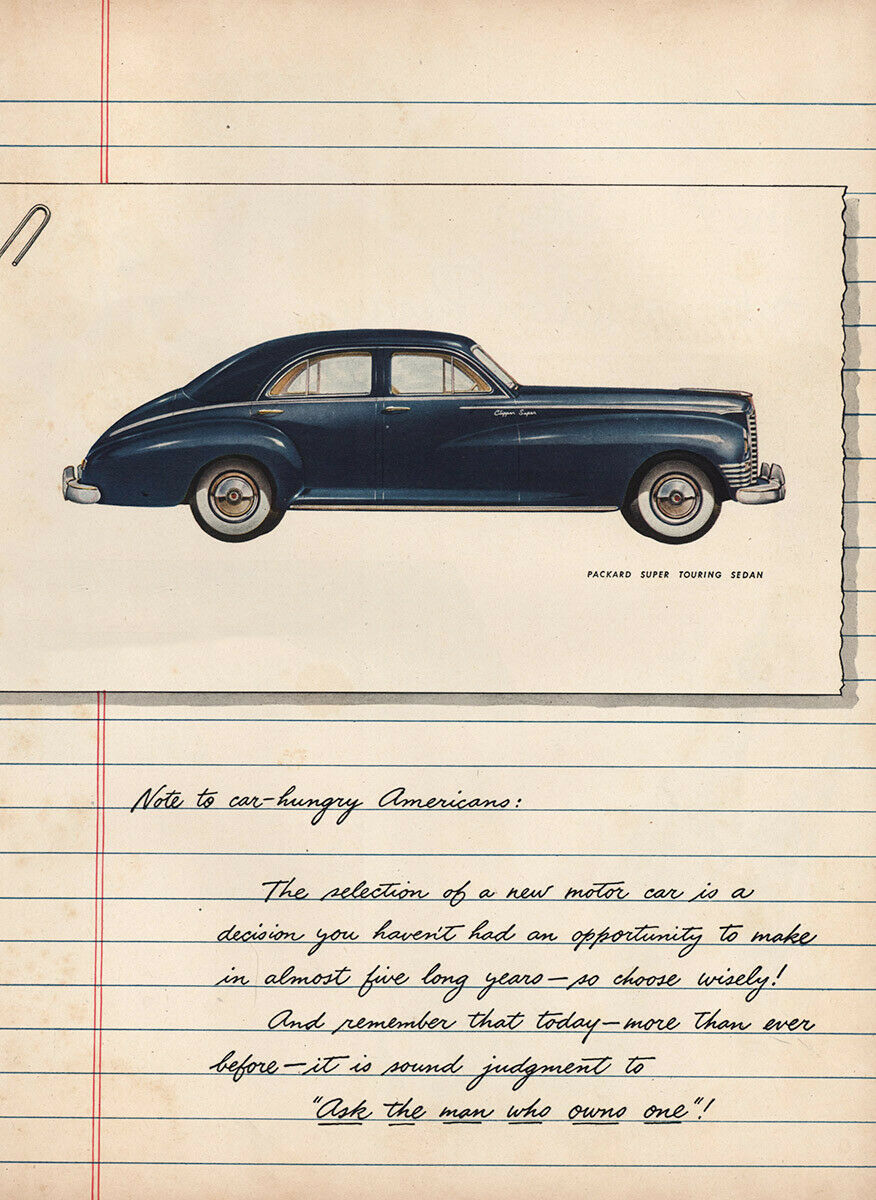 Clipper Super
PACKARD SUPER TOURING SEDAN
Note to car-hungry Americans:
The selection of a new motor car is a
decision you haven't had an opportunity to make
in almost five long years—so choose wisely!
And remember that today—more than ever
before—it is sound judgment to
"Ask the man who owns one"!